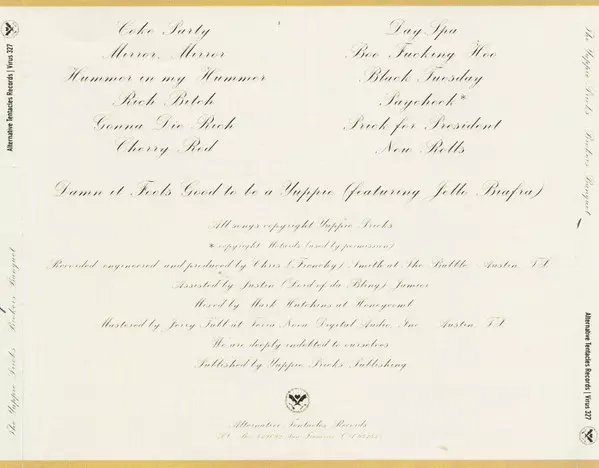 Coke Party
Mirror, Mirror
Hummer in my Hummer
Rich Bitch
Gonna Die Rich
Cherry Red
Day Spa
Boo Fucking Hoo
Black Tuesday
Paycheck*
Prick for President
New Rolls
Damn it Feels Good to be a Yuppie (featuring Jello Biafra)
All songs copyright Yuppie Pricks
* copyright Mentards (used by permission)
Recorded engineered and produced by Chris (Frenchy) Smith at The Bubble Austin, TX
Assisted by Justin (Lord of da Bling) Jamies
Mixed by Mark Hutchins at Honeycomb
Mastered by Jerry Tubb at Terra Nova Digital Audio, Inc Austin, TX
We are deeply indebted to ourselves
Published by Yuppie Pricks Publishing
Alternative Tentacles Records
San Francisco CA
Alternative Tentacles Records | Virus 327
The Yuppie Pricks Brokers Banquet
The Yuppie Pricks Brokers Banquet
Alternative Tentacles Records | Virus 327